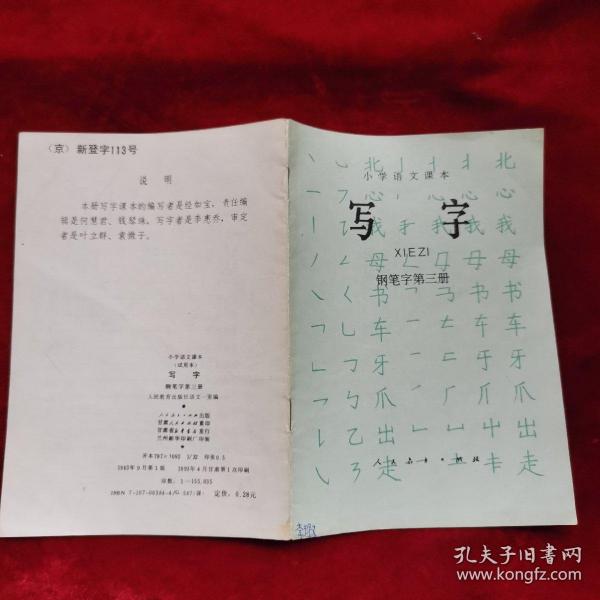 （京）新登字113号
说 明
本册写字课本的编写者是经如宝，责任编
辑是何慧君、钱琴珠，写字者是李惠乔，审定
者是叶立群、袁微子。
小学语文课本
（试用本）
写 字
钢笔字第三册
人民教育出版社语文一室编
人民教育出版社出版
甘肃人民出版社重印
甘肃省新华书店发行
兰州新华印刷厂印刷
开本787×1092 1/32 印张0.5
印数：1—155,035
定价：0.28元
小学语文课本
写 字
XIEZI
钢笔字第三册
人民教育出版社
北
心
我
母
书
车
牙
爪
出
走
孔夫子旧书网
www.kongfz.com